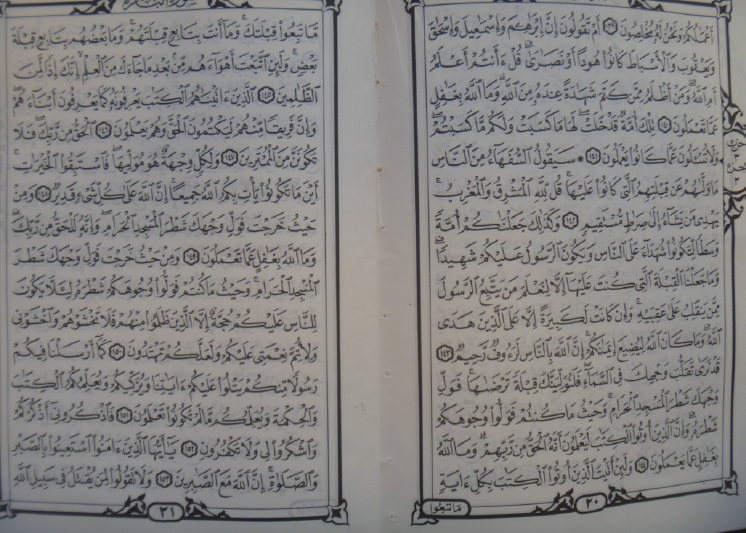 أَعْمَٰلُكُمْ وَنَحْنُ لَهُۥ مُخْلِصُونَ ١٣٩ أَمْ تَقُولُونَ إِنَّ إِبْرَٰهِيمَ وَإِسْمَٰعِيلَ وَإِسْحَٰقَ
وَيَعْقُوبَ وَٱلْأَسْبَاطَ كَانُوا۟ هُودًا أَوْ نَصَٰرَىٰ ۗ قُلْ ءَأَنتُمْ أَعْلَمُ
أَمِ ٱللَّهُ ۗ وَمَنْ أَظْلَمُ مِمَّن كَتَمَ شَهَٰدَةً عِندَهُۥ مِنَ ٱللَّهِ ۗ وَمَا ٱللَّهُ بِغَٰفِلٍ
عَمَّا تَعْمَلُونَ ١٤٠ تِلْكَ أُمَّةٌ قَدْ خَلَتْ ۖ لَهَا مَا كَسَبَتْ وَلَكُم مَّا كَسَبْتُمْ ۖ
وَلَا تُسْـَٔلُونَ عَمَّا كَانُوا۟ يَعْمَلُونَ ١٤١ ۞ سَيَقُولُ ٱلسُّفَهَآءُ مِنَ ٱلنَّاسِ
مَا وَلَّىٰهُمْ عَن قِبْلَتِهِمُ ٱلَّتِى كَانُوا۟ عَلَيْهَا ۚ قُل لِّلَّهِ ٱلْمَشْرِقُ وَٱلْمَغْرِبُ ۚ
يَهْدِى مَن يَشَآءُ إِلَىٰ صِرَٰطٍ مُّسْتَقِيمٍ ١٤٢ وَكَذَٰلِكَ جَعَلْنَٰكُمْ أُمَّةً
وَسَطًا لِّتَكُونُوا۟ شُهَدَآءَ عَلَى ٱلنَّاسِ وَيَكُونَ ٱلرَّسُولُ عَلَيْكُمْ شَهِيدًا ۗ
وَمَا جَعَلْنَا ٱلْقِبْلَةَ ٱلَّتِى كُنتَ عَلَيْهَآ إِلَّا لِنَعْلَمَ مَن يَتَّبِعُ ٱلرَّسُولَ
مِمَّن يَنقَلِبُ عَلَىٰ عَقِبَيْهِ ۚ وَإِن كَانَتْ لَكَبِيرَةً إِلَّا عَلَى ٱلَّذِينَ هَدَى
ٱللَّهُ ۗ وَمَا كَانَ ٱللَّهُ لِيُضِيعَ إِيمَٰنَكُمْ ۚ إِنَّ ٱللَّهَ بِٱلنَّاسِ لَرَءُوفٌ رَّحِيمٌ ١٤٣
قَدْ نَرَىٰ تَقَلُّبَ وَجْهِكَ فِى ٱلسَّمَآءِ ۖ فَلَنُوَلِّيَنَّكَ قِبْلَةً تَرْضَىٰهَا ۚ فَوَلِّ
وَجْهَكَ شَطْرَ ٱلْمَسْجِدِ ٱلْحَرَامِ ۚ وَحَيْثُ مَا كُنتُمْ فَوَلُّوا۟ وُجُوهَكُمْ
شَطْرَهُۥ ۗ وَإِنَّ ٱلَّذِينَ أُوتُوا۟ ٱلْكِتَٰبَ لَيَعْلَمُونَ أَنَّهُ ٱلْحَقُّ مِن رَّبِّهِمْ ۗ وَمَا ٱللَّهُ
بِغَٰفِلٍ عَمَّا يَعْمَلُونَ ١٤٤ وَلَئِنْ أَتَيْتَ ٱلَّذِينَ أُوتُوا۟ ٱلْكِتَٰبَ بِكُلِّ ءَايَةٍ
٢٠
مَّا تَبِعُوا۟
حزب
٣
سورة البقرة
مَّا تَبِعُوا۟ قِبْلَتَكَ ۚ وَمَآ أَنتَ بِتَابِعٍ قِبْلَتَهُمْ ۚ وَمَا بَعْضُهُم بِتَابِعٍ قِبْلَةَ
بَعْضٍ ۚ وَلَئِنِ ٱتَّبَعْتَ أَهْوَآءَهُم مِّنۢ بَعْدِ مَا جَآءَكَ مِنَ ٱلْعِلْمِ ۙ إِنَّكَ إِذًا لَّمِنَ
ٱلظَّٰلِمِينَ ١٤٥ ٱلَّذِينَ ءَاتَيْنَٰهُمُ ٱلْكِتَٰبَ يَعْرِفُونَهُۥ كَمَا يَعْرِفُونَ أَبْنَآءَهُمْ ۖ
وَإِنَّ فَرِيقًا مِّنْهُمْ لَيَكْتُمُونَ ٱلْحَقَّ وَهُمْ يَعْلَمُونَ ١٤٦ ٱلْحَقُّ مِن رَّبِّكَ ۖ فَلَا
تَكُونَنَّ مِنَ ٱلْمُمْتَرِينَ ١٤٧ وَلِكُلٍّ وِجْهَةٌ هُوَ مُوَلِّيهَا ۖ فَٱسْتَبِقُوا۟ ٱلْخَيْرَٰتِ ۚ
أَيْنَ مَا تَكُونُوا۟ يَأْتِ بِكُمُ ٱللَّهُ جَمِيعًا ۚ إِنَّ ٱللَّهَ عَلَىٰ كُلِّ شَىْءٍ قَدِيرٌ ١٤٨ وَمِنْ
حَيْثُ خَرَجْتَ فَوَلِّ وَجْهَكَ شَطْرَ ٱلْمَسْجِدِ ٱلْحَرَامِ ۖ وَإِنَّهُۥ لَلْحَقُّ مِن رَّبِّكَ ۗ
وَمَا ٱللَّهُ بِغَٰفِلٍ عَمَّا تَعْمَلُونَ ١٤٩ وَمِنْ حَيْثُ خَرَجْتَ فَوَلِّ وَجْهَكَ شَطْرَ
ٱلْمَسْجِدِ ٱلْحَرَامِ ۚ وَحَيْثُ مَا كُنتُمْ فَوَلُّوا۟ وُجُوهَكُمْ شَطْرَهُۥ لِئَلَّا يَكُونَ
لِلنَّاسِ عَلَيْكُمْ حُجَّةٌ إِلَّا ٱلَّذِينَ ظَلَمُوا۟ مِنْهُمْ فَلَا تَخْشَوْهُمْ وَٱخْشَوْنِى
وَلِأُتِمَّ نِعْمَتِى عَلَيْكُمْ وَلَعَلَّكُمْ تَهْتَدُونَ ١٥٠ كَمَآ أَرْسَلْنَا فِيكُمْ
رَسُولًا مِّنكُمْ يَتْلُوا۟ عَلَيْكُمْ ءَايَٰتِنَا وَيُزَكِّيكُمْ وَيُعَلِّمُكُمُ ٱلْكِتَٰبَ
وَٱلْحِكْمَةَ وَيُعَلِّمُكُم مَّا لَمْ تَكُونُوا۟ تَعْلَمُونَ ١٥١ فَٱذْكُرُونِىٓ أَذْكُرْكُمْ
وَٱشْكُرُوا۟ لِى وَلَا تَكْفُرُونِ ١٥٢ يَٰٓأَيُّهَا ٱلَّذِينَ ءَامَنُوا۟ ٱسْتَعِينُوا۟ بِٱلصَّبْرِ
وَٱلصَّلَوٰةِ ۚ إِنَّ ٱللَّهَ مَعَ ٱلصَّٰبِرِينَ ١٥٣ وَلَا تَقُولُوا۟ لِمَن يُقْتَلُ فِى سَبِيلِ ٱللَّهِ
٢١